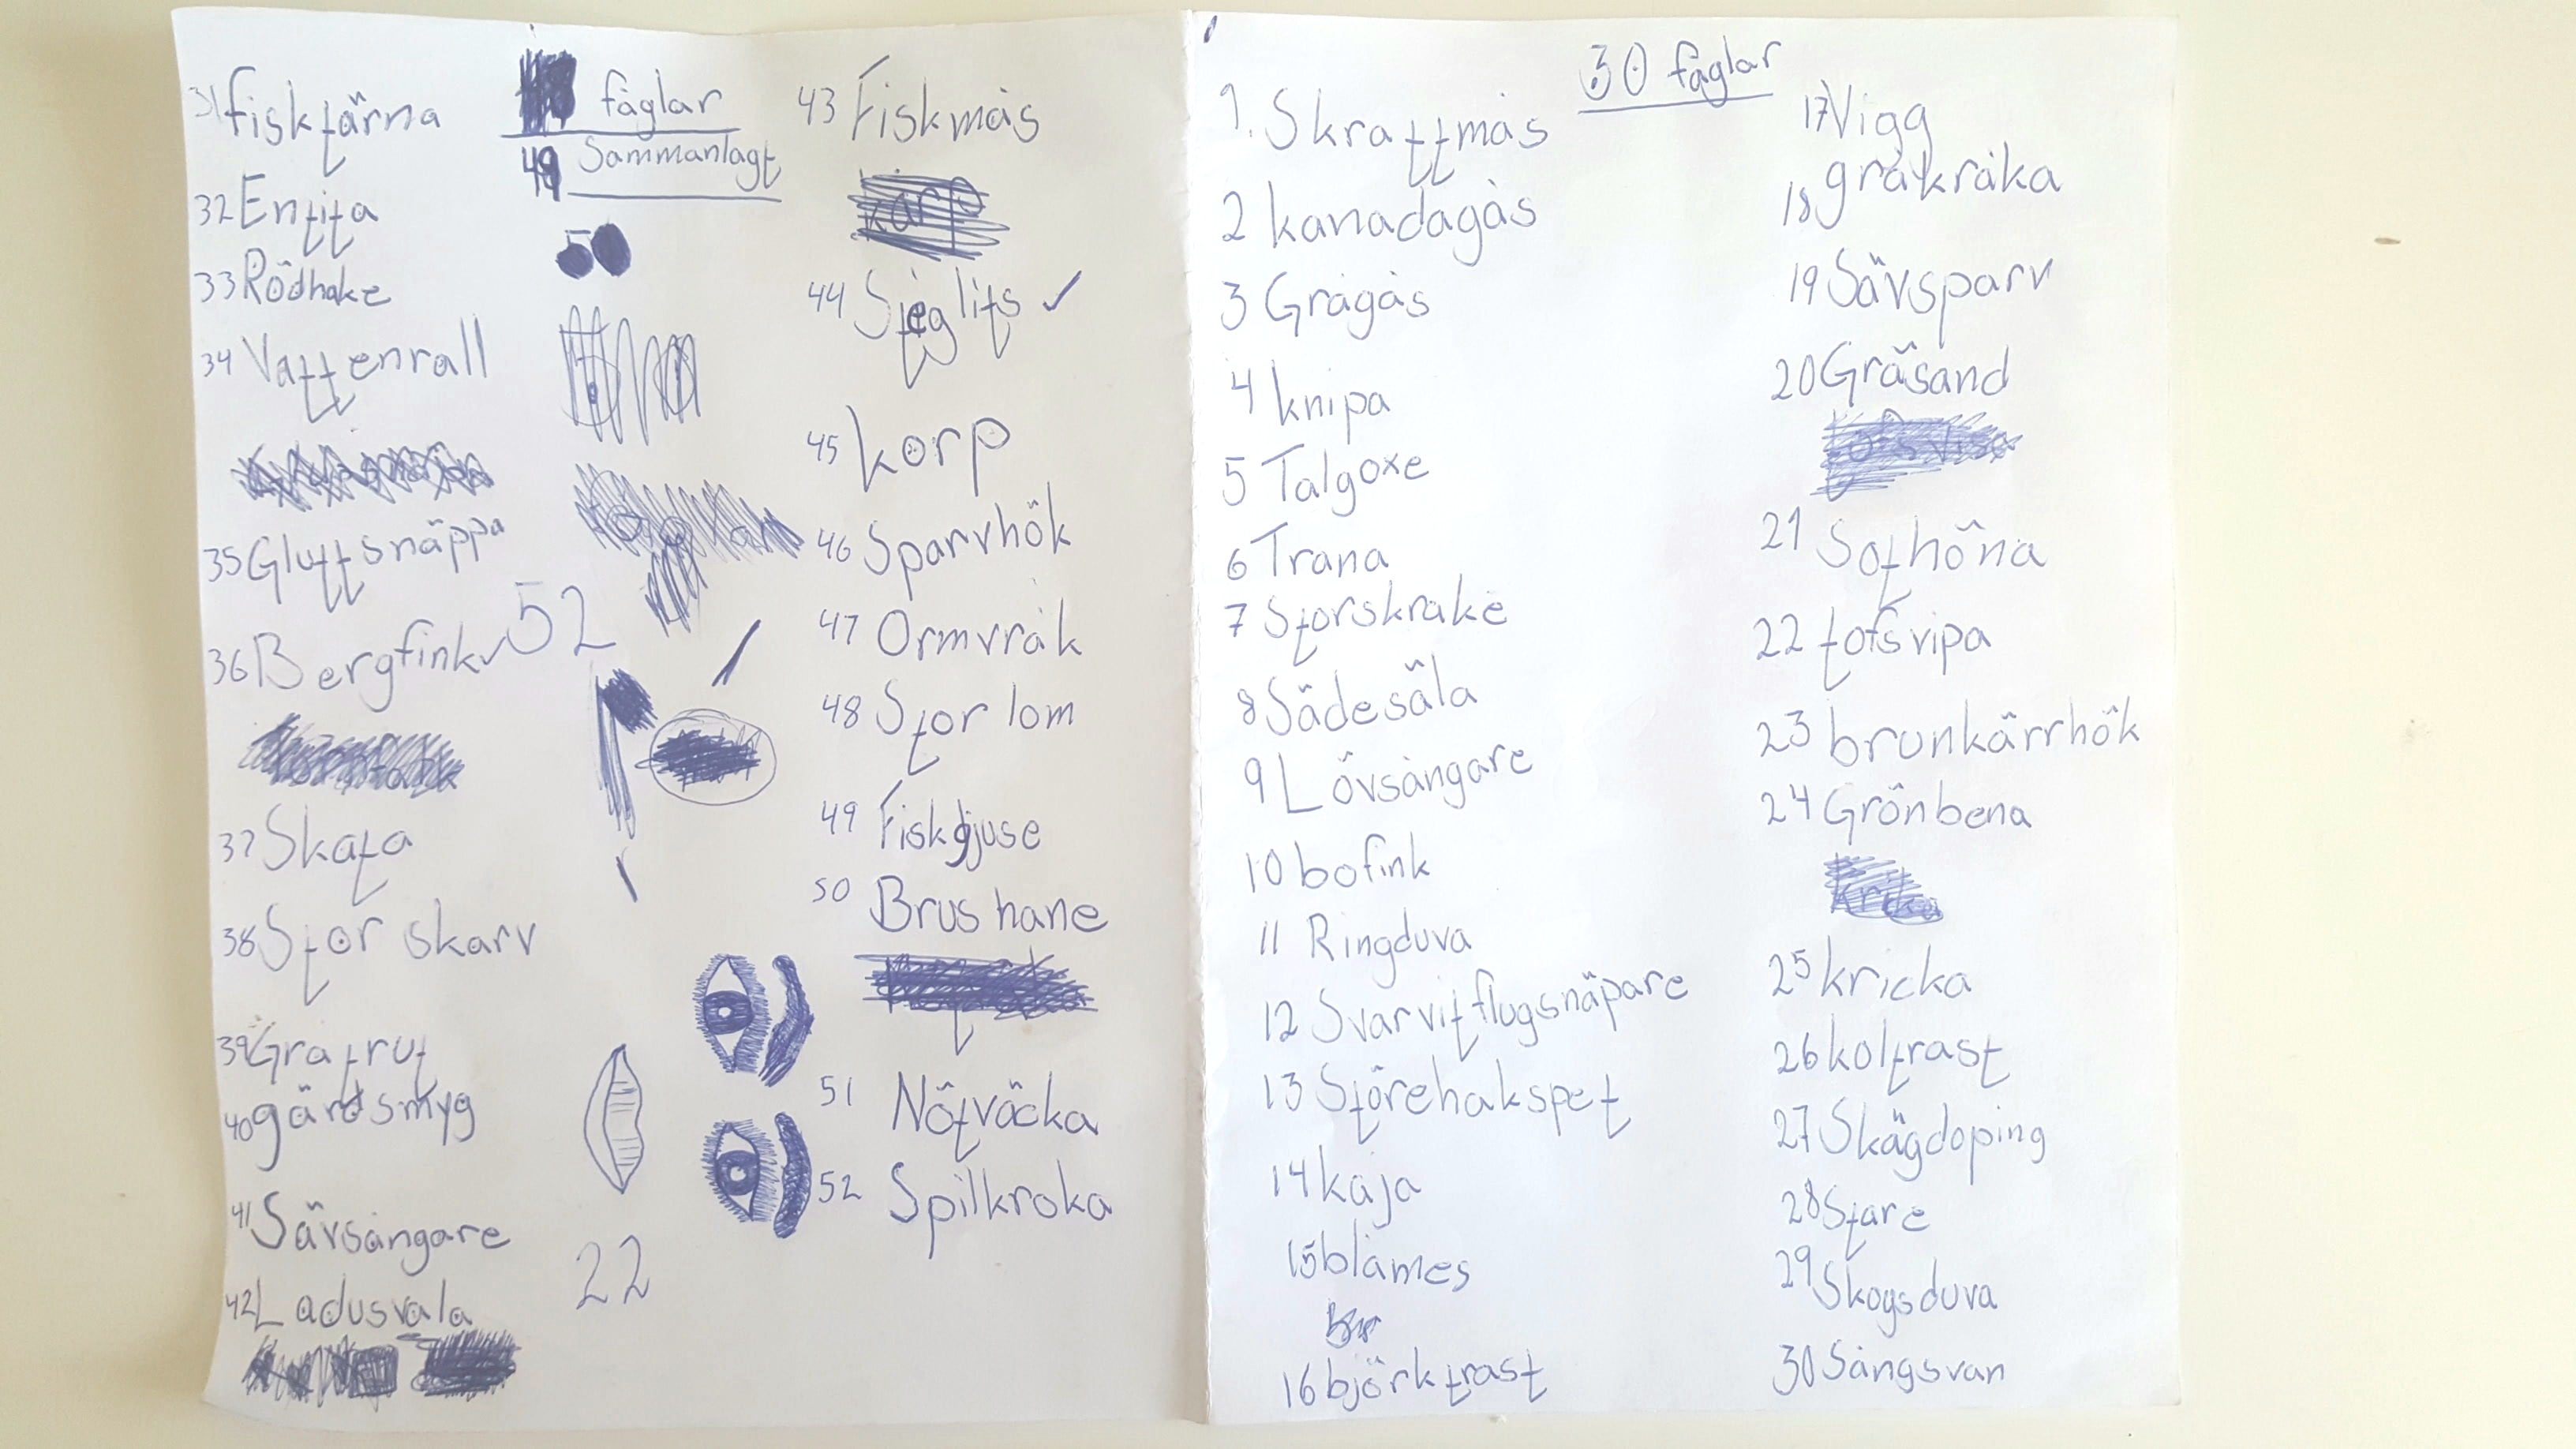 31 fisktärna
32 Entita
33 Rödhake
34 Vattenrall
35 Gluttsnäppa
36 Bergfink
37 Skata
38 Stor skarv
39 Gratrut
40 gärdsmyg
41 Sävsångare
42 Ladusvala
fåglar
49 Sammanlagt
52
22
43 Fiskmås
44 Steglits ✓
45 korp
46 Sparvhök
47 Ormvråk
48 Stor lom
49 Fiskgjuse
50 Brushane
51 Nötväcka
52 Spilkroka
30 fåglar
1. Skrattmås
2 kanadagås
3 Grågås
4 knipa
5 Talgoxe
6 Trana
7 Storskrake
8 Sädesäla
9 Lövsångare
10 bofink
11 Ringduva
12 Svarvitflugsnäpare
13 Störehakspet
14 kaja
15 blåmes
16 björktrast
17 Vigg
18 gråkråka
19 Sävsparv
20 Gräsand
21 Sothöna
22 tofsvipa
23 brunkärrhök
24 Grönbena
25 kricka
26 koltrast
27 Skägdoping
28 Stare
29 Skogsduva
30 Sångsvan